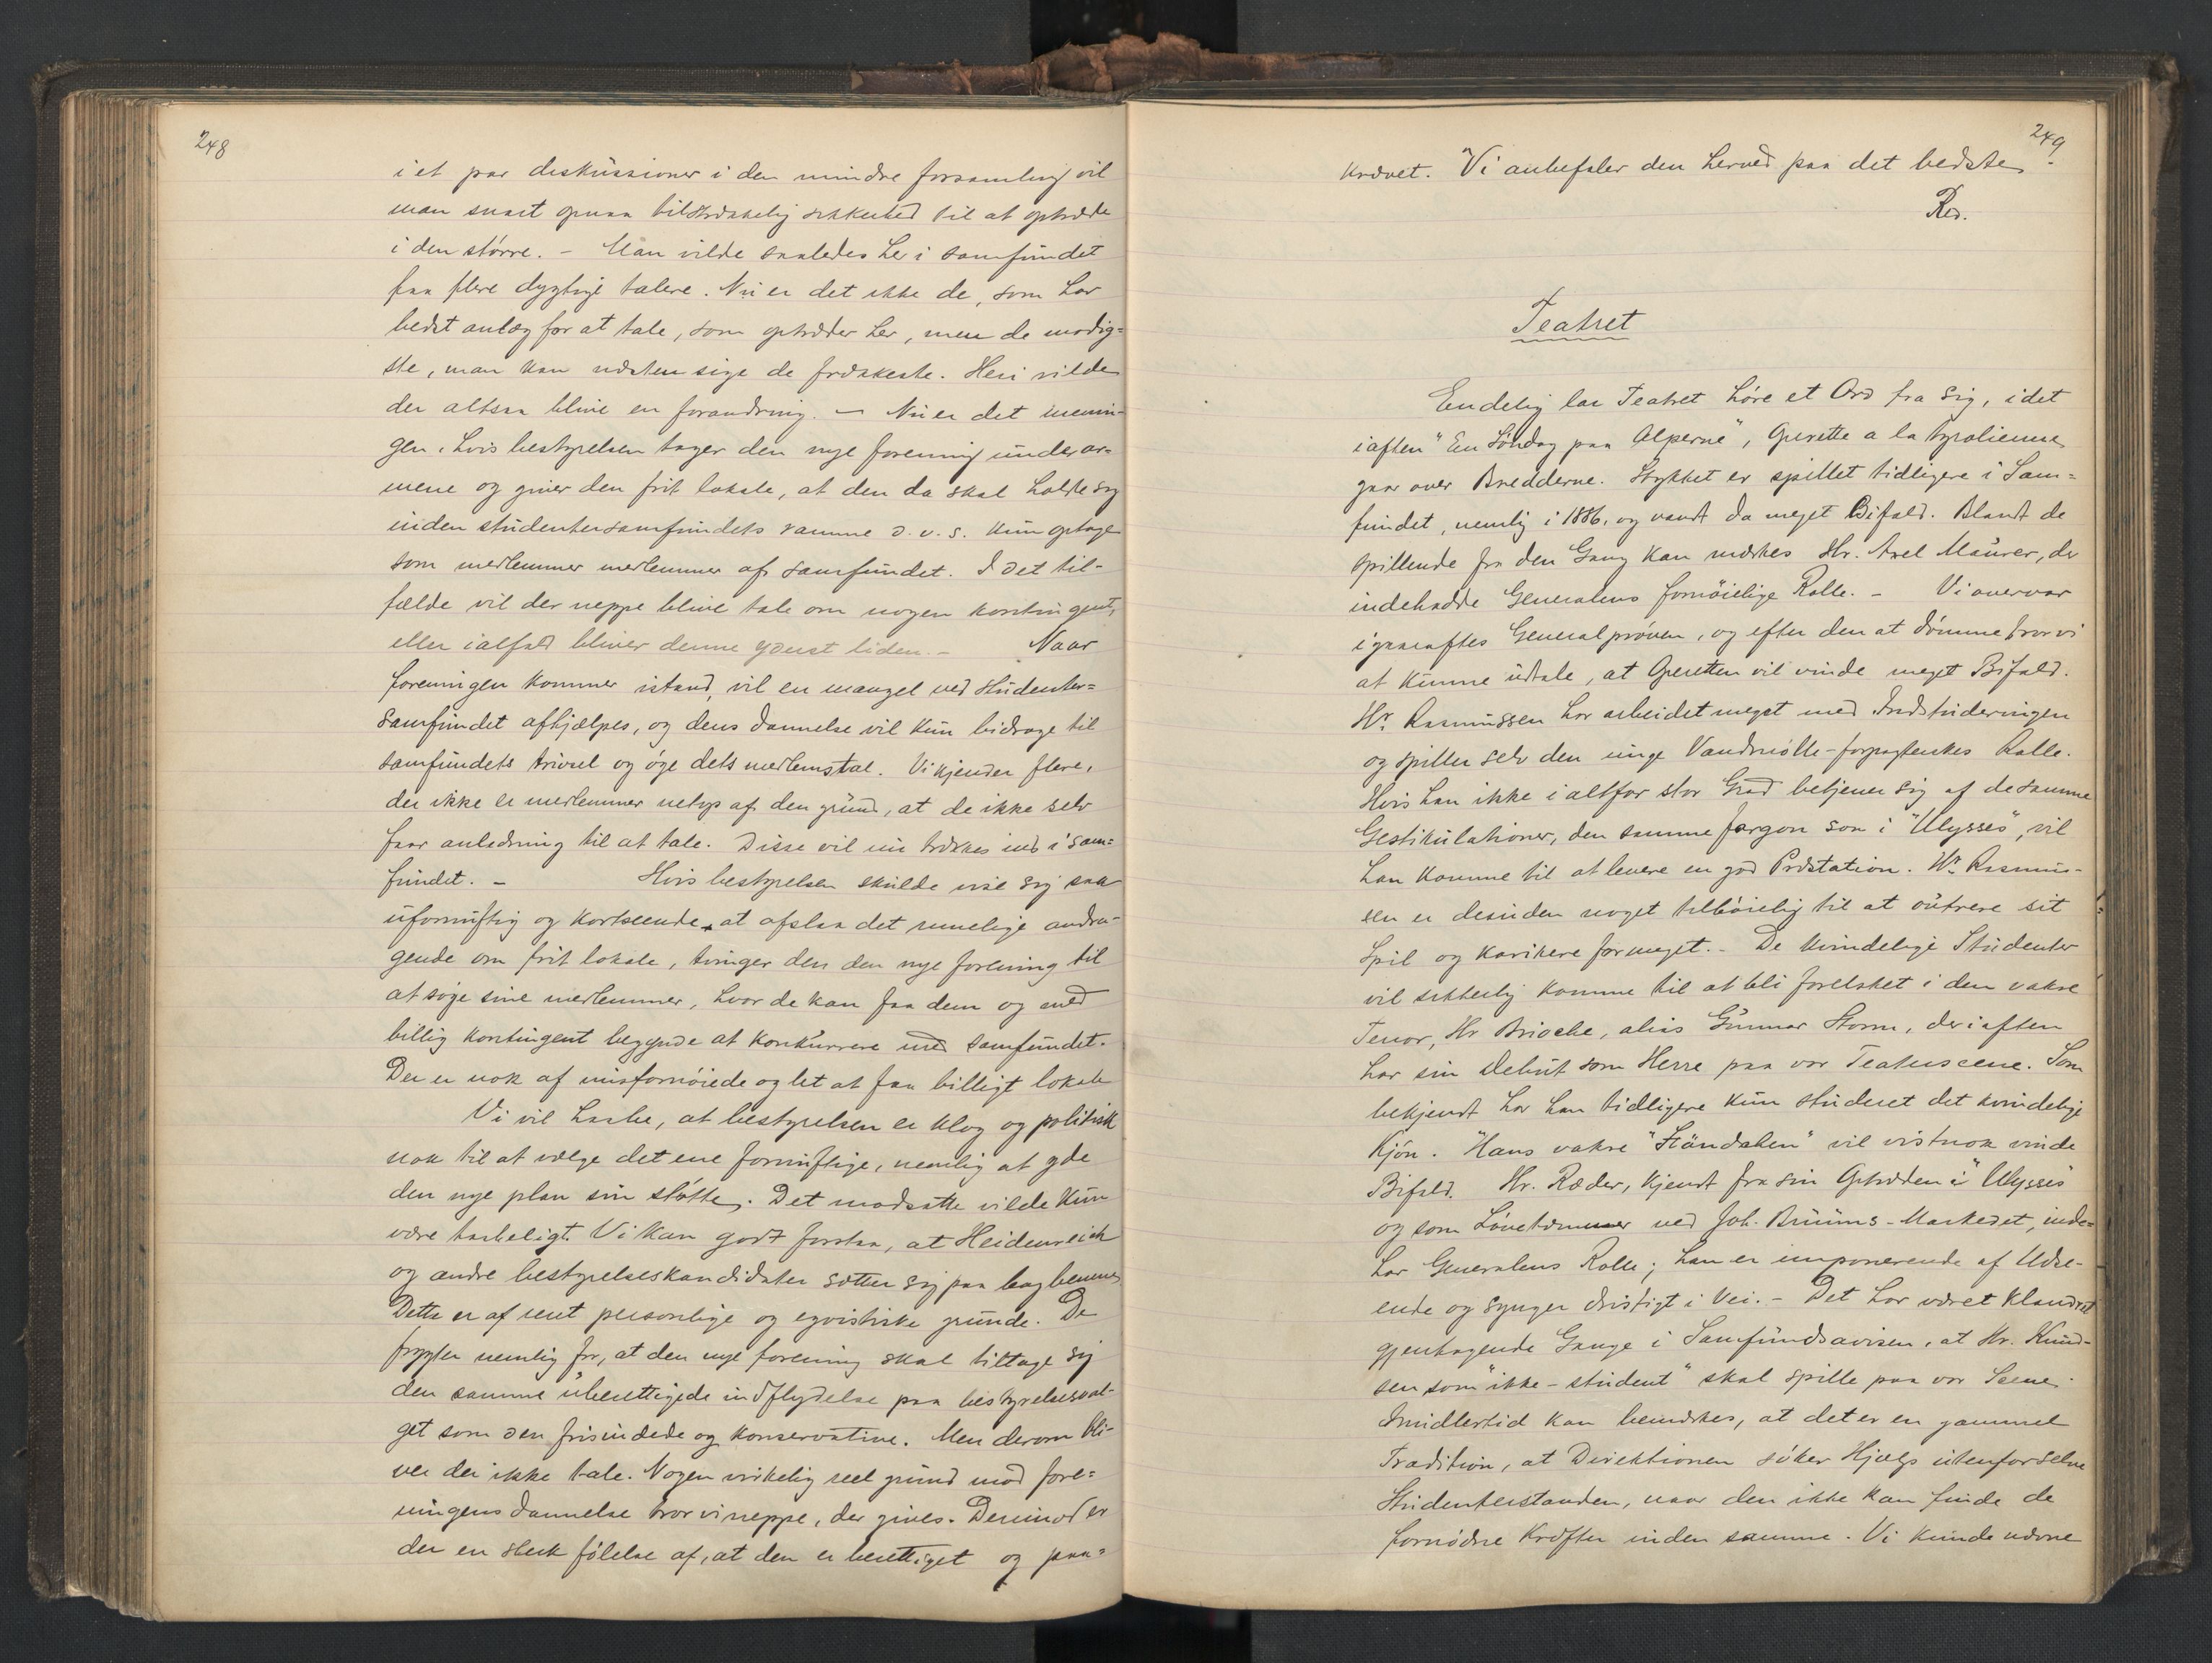 248
i et par diskussioner i den mindre forsamling vil
man snart opnaa tilstrækkelig sikkerhed til at optræde
i den større. – Man vilde saaledes her i samfundet
faa flere dygtige talere. Nu er det ikke de, som har
bedst anlæg for at tale, som optræder her, men de modig=
ste, man kan næsten sige de frækkeste. Heri vilde
der altsaa blive en forandring. – Nu er det menin-
gen, hvis bestyrelsen tager den nye forening under ar-
mene og giver den frit lokale, at den da skal holde sig
inden studentersamfundets ramme d. v. s. kun optage
som medlemmer medlemmer af samfundet. I det til-
fælde vil der neppe blive tale om nogen kontingent,
eller ialfald bliver denne yderst liden. – Naar
foreningen kommer istand, vil en mangel ved Studenter=
samfundet afhjælpes, og dens dannelse vil kun bidrage til
samfundets trivsel og øge dets medlemstal. Vi kjender flere,
der ikke er medlemmer netop af den grund, at de ikke selv
faar anledning til at tale. Disse vil nu trækkes ind i sam=
fundet. – Hvis bestyrelsen skulde vise sig saa
ufornuftig og kortseende, at afslaa det rimelige andra-
gende om frit lokale, tvinger den den nye forening til
at søge sine medlemmer, hvor de kan faa dem og med
billig kontingent begynde at konkurrere med samfundet.
Der er nok af misfornøiede og let at faa billigt lokale
Vi vil haabe, at bestyrelsen er klog og politisk
nok til at vælge det ene fornuftige, nemlig at yde
den nye plan sin støtte. Det modsatte vilde kun
være taabeligt. Vi kan godt forstaa, at Heidenreich
og andre bestyrelseskandidater sætter sig paa bagbenene
Dette er af rent personlige og egoistiske grunde. De
frygter nemlig for, at den nye forening skal tiltage sig
den samme uberettigede indflydelse paa bestyrelsesval-
get som den frisindede og konservative. Men derom bli-
ver der ikke tale. Nogen virkelig reel grund mod fore=
ningens dannelse tror vi neppe, der gives. Derimod er
der en sterk følelse af, at den er berettiget og paa=
249
krævet. Vi anbefaler den herved paa det bedste.
Red.
Teatret
Endelig lar Teatret høre et Ord fra sig, idet
iaften "En Søndag paa Alperne", Operette a la tyrolienne
gaar over Brædderne. Stykket er spillet tidligere i Sam=
fundet, nemlig i 1886, og vandt da meget Bifald. Blandt de
spillende fra den Gang kan mærkes Hr. Axel Maurer, der
indehadde Generalens fornøielige Rolle. – Vi overvar
igaaraftes Generalprøven, og efter den at dømme tror vi
at kunne udtale, at Operetten vil vinde meget Bifald.
Hr. Rasmussen har arbeidet meget med Indstuderingen
og spiller selv den unge Vandmølle-forpagterskes Rolle.
Hvis han ikke i altfor stor Grad betjener sig af de samme
Gestikulationer, den samme Jargon som i "Ulysses", vil
han komme til at levere en god Præstation. Hr. Rasmus-
sen er desuden noget tilbøielig til at outrere sit
Spil og karikere for meget. – De kvindelige Studenter
vil sikkerlig komme til at bli forelsket i den vakre
Tenor, Hr Brioche, alias Gunnar Storm, der iaften
har sin Debut som Herre paa vor Teaterscene. Som
bekjendt har han tidligere kun studeret det kvindelige
Kjøn. Hans vakre "Ständchen" vil vistnok vinde
Bifald. Hr. Ræder, kjendt fra sin Optræden i "Ulysses"
og som Løvetæmmer ved Joh. Bruuns-Markedet, inde=
har Generalens Rolle; han er imponerende af Udse-
ende og synger dristigt i Vei. – Det har været klandret
gjentagende Gange i Samfundsavisen, at Hr. Knud-
sen som "ikke-student" skal spille paa vor Scene.
Imidlertid kan bemærkes, at det er en gammel
Tradition, at Direktionen søker Hjælp utenfor selve
Studenterstanden, naar den ikke kan finde de
fornødne Kræfter inden samme. Vi kunde nævne